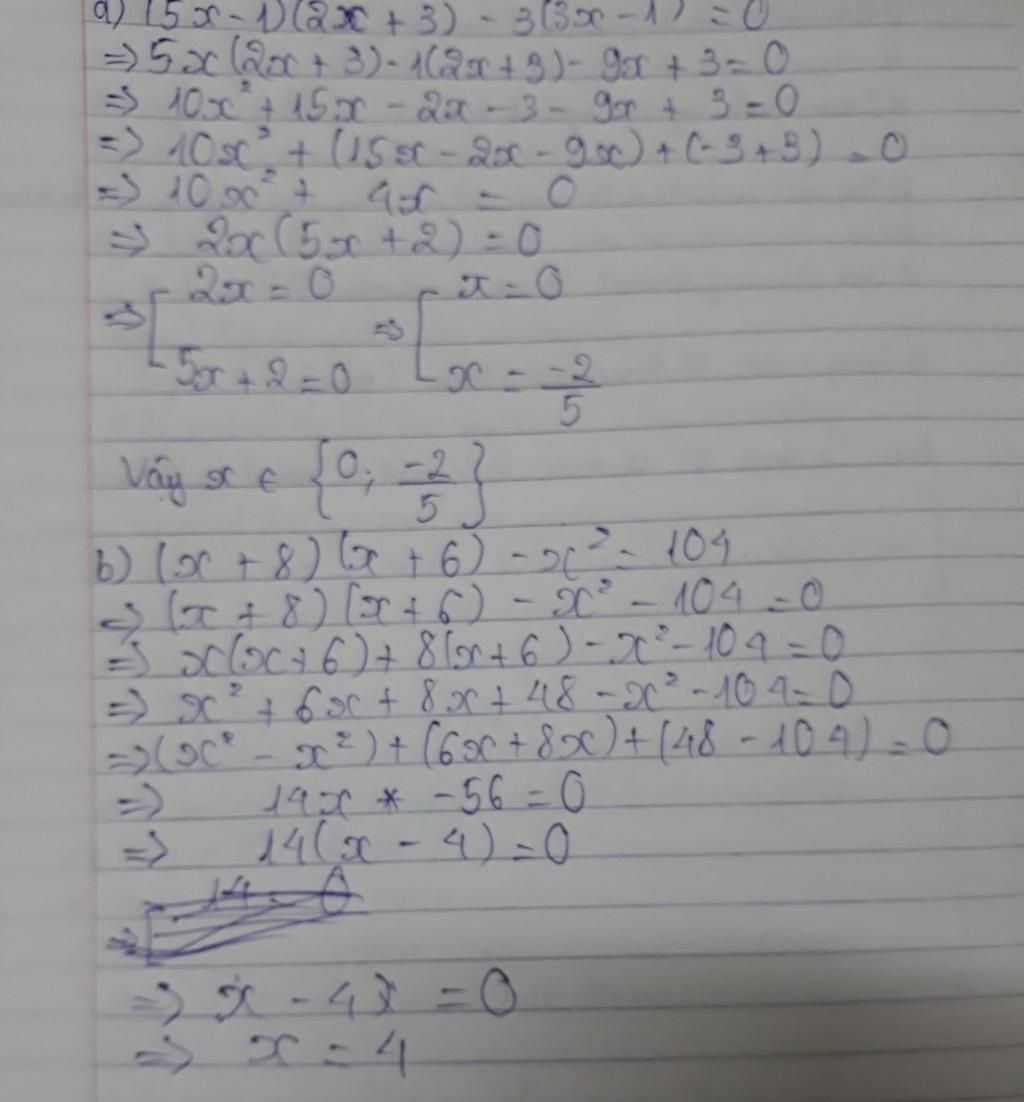 a) (5x-1)(2x+3) - 3(3x-1) = 0
=> 5x(2x+3) - 1(2x+3) - 9x + 3 = 0
=> 10x² + 15x - 2x - 3 - 9x + 3 = 0
=> 10x² + (15x - 2x - 9x) + (-3+3) = 0
=> 10x² + 4x = 0
=> 2x(5x+2) = 0
=> [ 2x = 0 => [ x = 0
5x + 2 = 0 x = -2/5
Vậy x ∈ {0; -2/5}
b) (x+8)(x+6) - x² = 104
=> (x+8)(x+6) - x² - 104 = 0
=> x(x+6) + 8(x+6) - x² - 104 = 0
=> x² + 6x + 8x + 48 - x² - 104 = 0
=> (x² - x²) + (6x+8x) + (48 - 104) = 0
=> 14x * -56 = 0
=> 14(x - 4) = 0
=> x - 4 = 0
=> x = 4